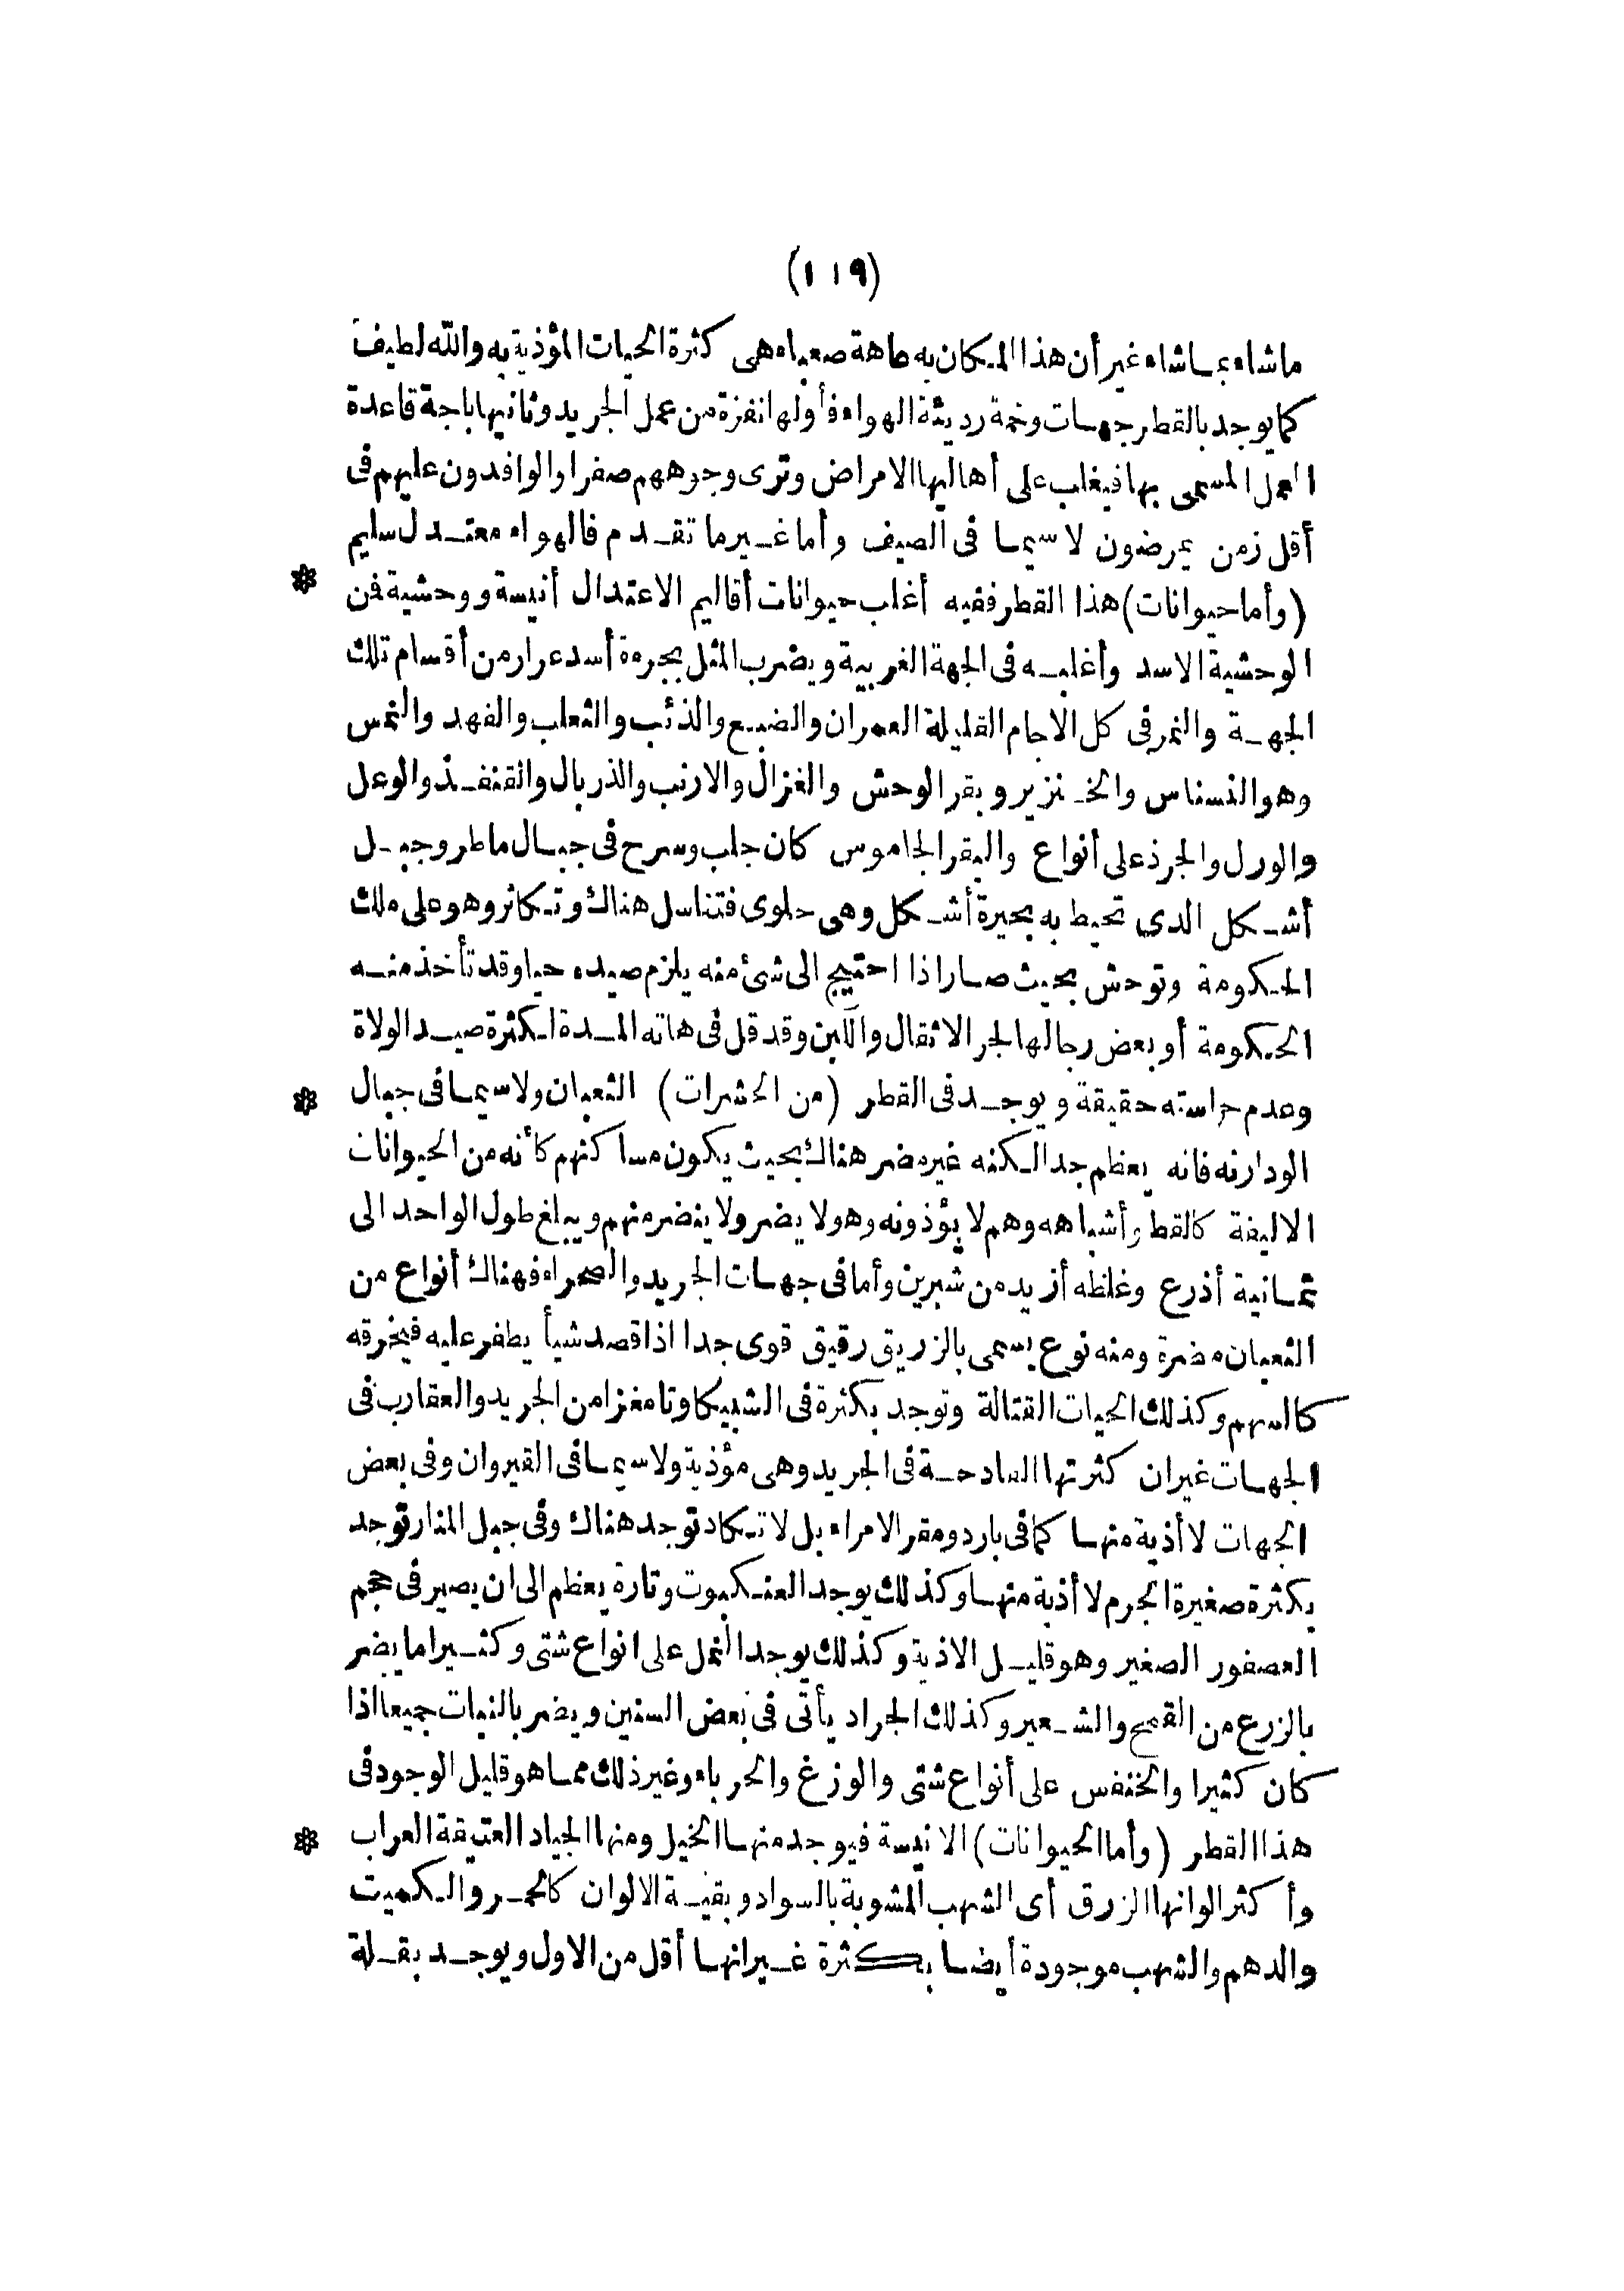 (١١٩)
ما شاء بما شاء غير أن هذا المكان به عاهة صعباء هى كثرة الحيات المؤذية به والله لطيف
كما يوجد بالقطر جهات وخمة رديئة الهواء فأولها نفزة من عمل الجريد وثانيها باجة قاعدة
العمل المسمى بها فيغلب على أهاليها الامراض وترى وجوههم صفرا والوافدون عليهم فى
أقل زمن يمرضون لا سيما فى الصيف وأما غير ما تقدم فالهواء معتدل سليم
(وأما حيوانات) هذا القطر ففيه أغلب حيوانات أقاليم الاعتدال أنيسة ووحشية فمن *
الوحشية الاسد وأغلبه فى الجهة الغربية ويضرب المثل بجرءة أسد عرار من أقسام تلك
الجهة والنمر فى كل الاجام القليلة العمران والضبع والذئب والثعلب والفهد والنمس
وهو النسناس والخنزير وبقر الوحش والغزال والارنب والذربال والقنفذ والوعل
والورل والجرذ على أنواع والبقر الجاموس كان جلب وسرح فى جبال ماطر وجبل
أشكل الدى تحيط به بحيرة أشكل وهى حلوى فتناسل هناك وتكاثر وهو على ملك
الحكومة وتوحش بحيث صار اذا احتيج الى شئ منه يلزم صيده حيا وقد تأخذ منه
الحكومة أو بعض رجالها لجر الاثقال واللبن وقد قل فى هاته المدة لكثرة صيد الولاة
وعدم حراسته حقيقة ويوجد فى القطر (من الحشرات) الثعبان ولا سيما فى جبال *
الودارنه فانه يعظم جدا لكنه غير مضر هناك بحيث يكون مساكنهم كأنه من الحيوانات
الاليفة كالقط وأشباهه وهم لا يؤذونه وهو لا يضر ولا ينضر منهم ويبلغ طول الواحد الى
ثمانية أذرع وغلظه أزيد من شبرين وأما فى جهات الجريد والصحراء فهناك أنواع من
الثعبان مضرة ومنه نوع يسمى بالزريق رقيق قوى جدا اذا قصد شيأ يطفر عليه فيخرقه
كالسهم وكذلك الحيات القتالة وتوجد بكثرة فى الشبيكا وتامغزا من الجريد والعقارب فى
الجهات غير ان كثرتها الفادحة فى الجريد وهى مؤذية ولا سيما فى القيروان وفى بعض
الجهات لا أذية منها كما فى باردو مقر الامراء بل لا تكاد توجد هناك وفى جبل المنار توجد
بكثرة صغيرة الجرم لا أذية منها وكذلك يوجد العنكبوت وتارة يعظم الى ان يصير فى حجم
العصفور الصغير وهو قليل الاذية وكذلك يوجد النمل على انواع شتى وكثيرا ما يضر
بالزرع من القمح والشعير وكذلك الجراد يأتى فى بعض السنين ويضر بالنبات جميعا اذا
كان كثيرا والخنفس على أنواع شتى والوزغ والحرباء وغير ذلك مما هو قليل الوجود فى
هذا القطر (وأما الحيوانات) الانيسة فيوجد منها الخيل ومنها الجياد العتيقة العراب *
وأكثر الوانها الزرق أى الشهب المشوبة بالسواد وبقية الالوان كالحمر والكميت
والدهم والشهب موجودة أيضا بكثرة غير انها أقل من الاول ويوجد بقلة